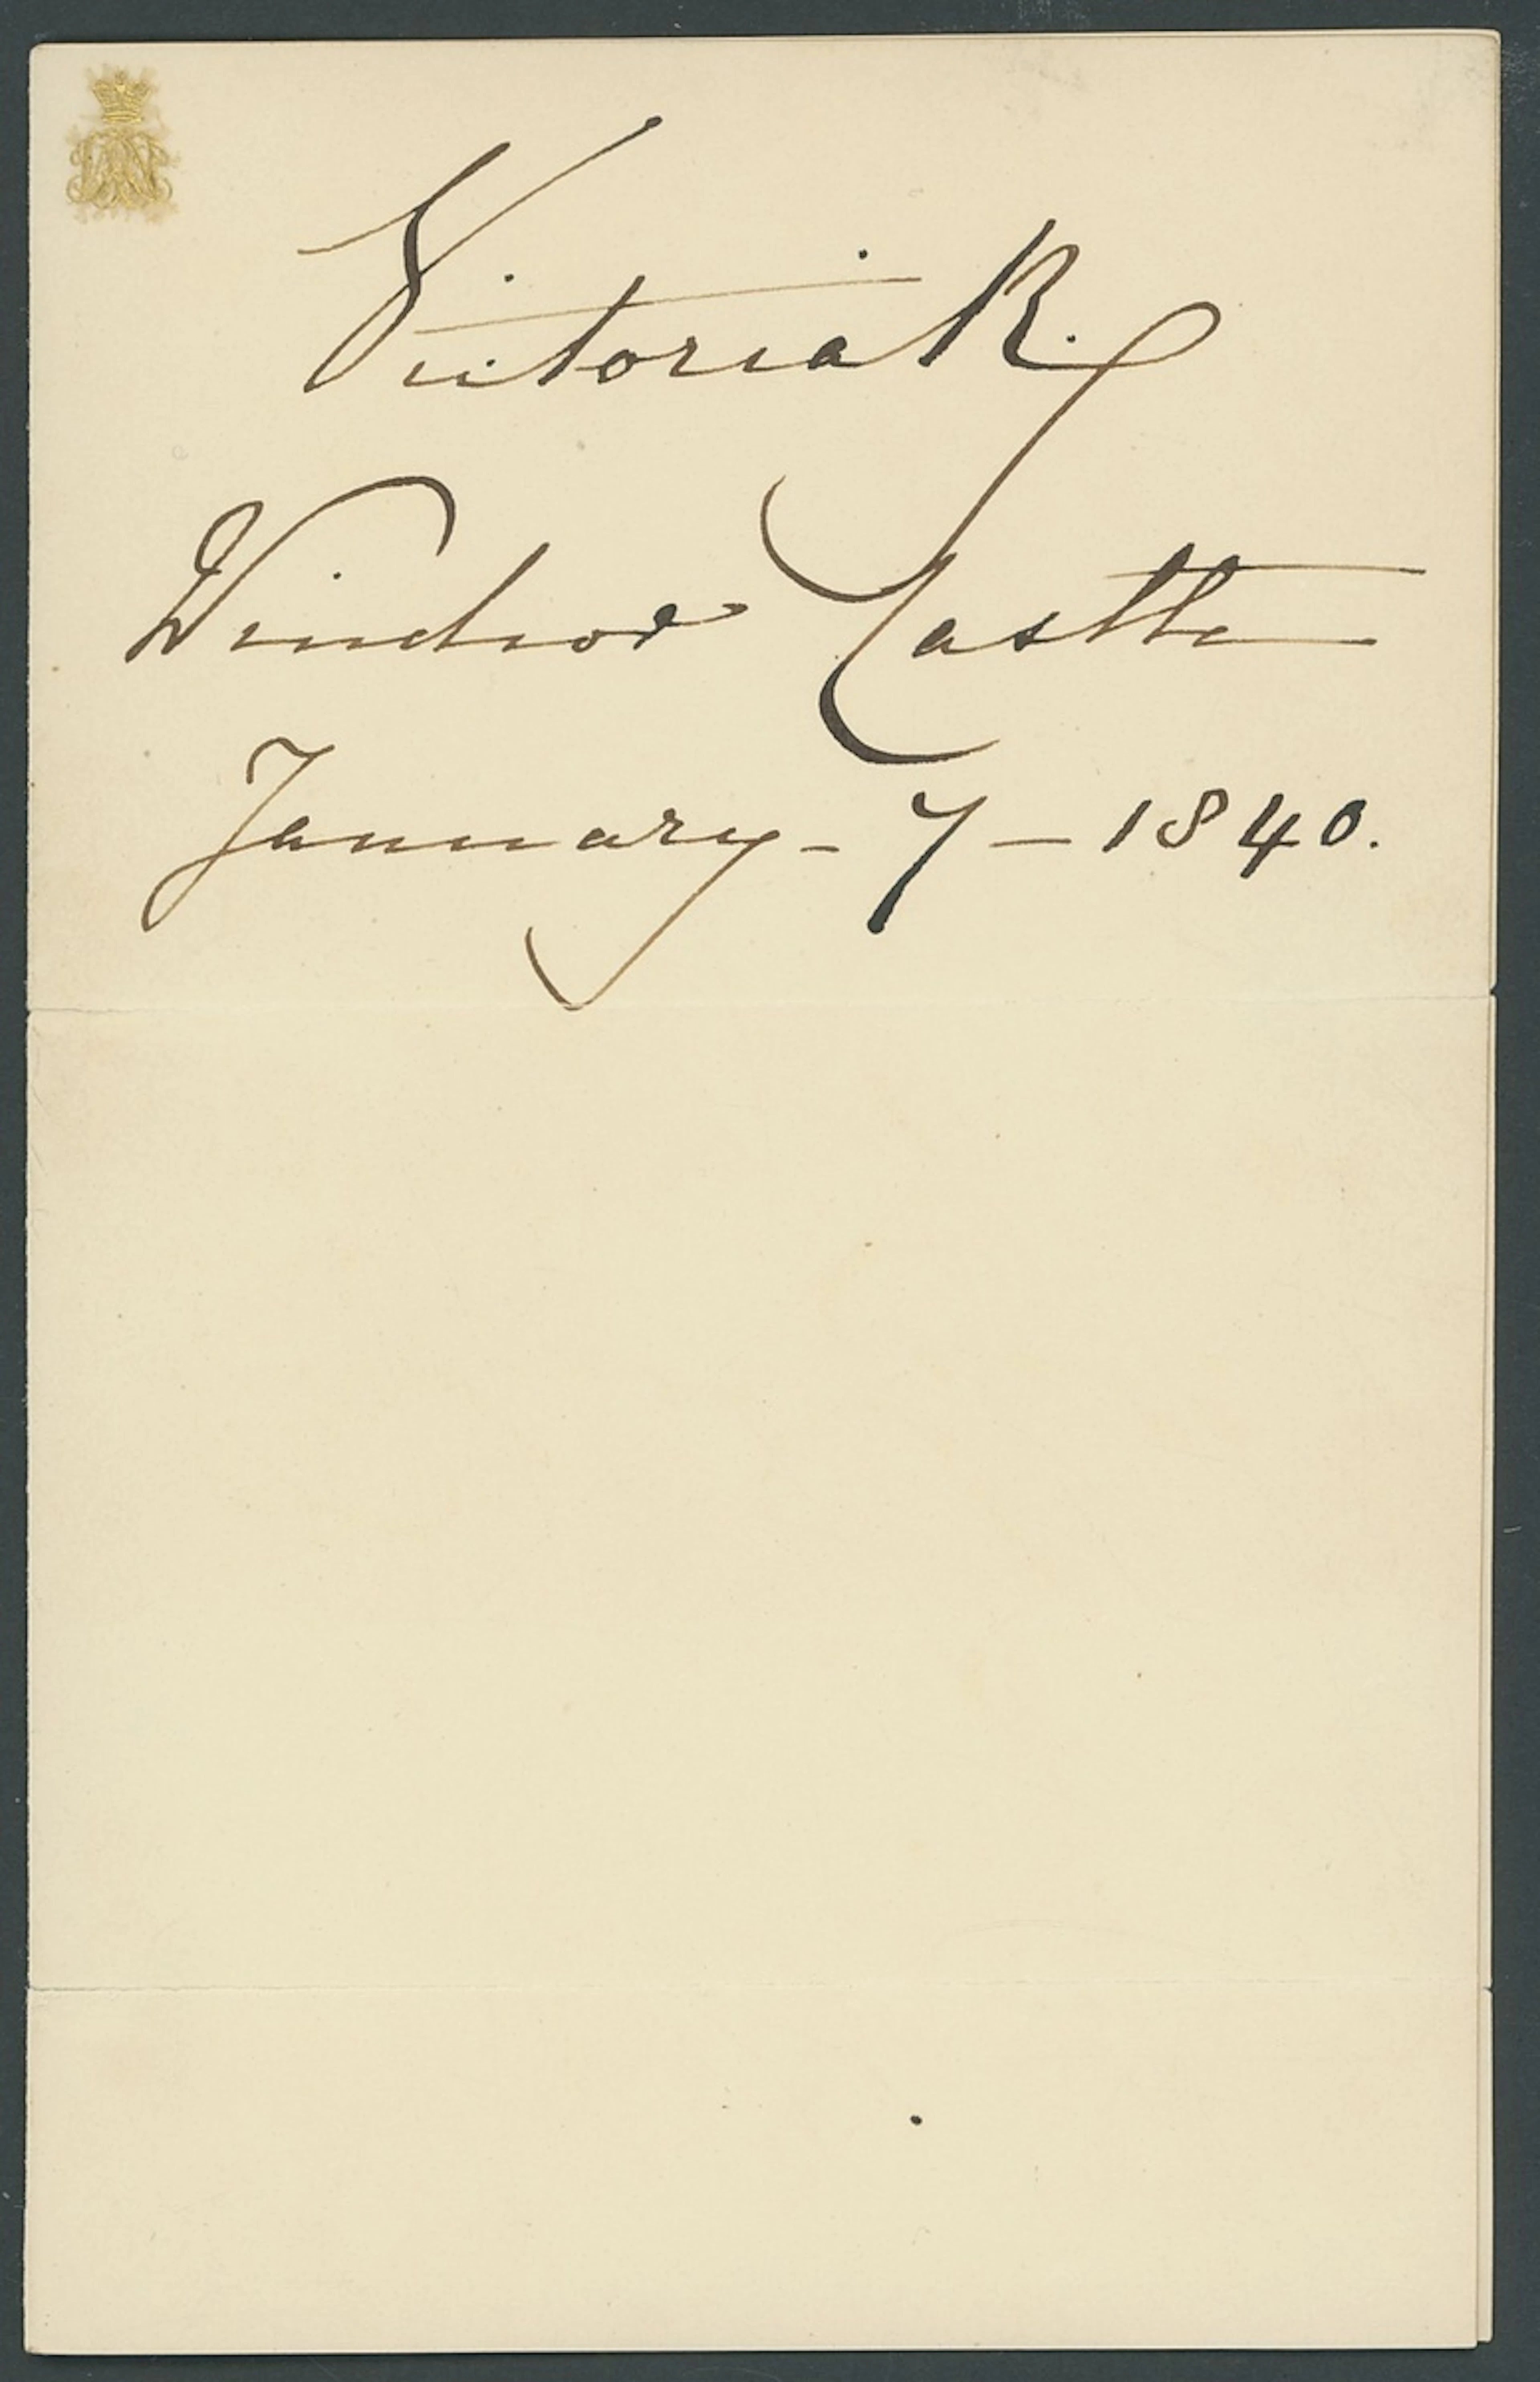 Victoria R.
Windsor Castle
January - 7 - 1840.